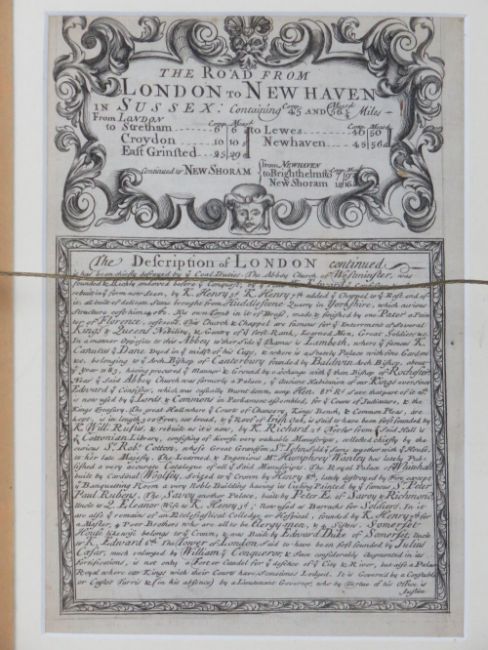 THE ROAD FROM
LONDON TO NEW HAVEN
IN SUSSEX: Containing Comp. 45 AND Meas.d 56 ¼ Miles
From LONDON Comp. Meas.d Comp. Meas.d
to Stretham 6 6 to Lewes 40 50
Croydon 10 10 Newhaven 45 56
East Grinsted 25 29
Continued to NEW SHORAM
from NEWHAVEN
to Brighthelmsto
New Shoram
The Description of LONDON continued
has been chiefly defrayed by ye Coal Duties. The Abbey Church of Westminster, was
founded & Richly endowed before ye Conquest,
rebuilt in ye form now seen, by K. Henry 3d K. Henry 7th added ye Chappel to ye East end of
it; all built of delicate Stone brought from Huddlestone Quarry in Yorkshire, which curious
Structure cost him His own Tomb in it of Brass, made & finish'd by one Peter a Pain
ter of Florence This Church & Chappel are famous for ye Interments of several
Kings & Queens Nobility, & Gentry of ye first Rank, Learned Men, Great Soldiers &c.
In a manner opposite to this Abbey on ye other Side ye Thames is Lambeth, where ye famous K.
Canutus ye Dane Dyed in ye midst of his Cups, & where is a stately Palace with fine Gardens
&c. belonging to ye Arch-Bishop of Canterbury founded by Baldwin Arch-Bishop, about
ye Year 1183, having procured ye Manner & Ground by exchange with ye then Bishop of Rochester
Near ye said Abbey Church was formerly a Palace, ye Antient Habitation of our Kings ever since
Edward ye Confessor, which was casually Burnt down, Hen. 8th & Save that part of it wch
is now used by ye Lords & Commons in Parliament assembled, for ye Court of Judicature, & the
Kings Treasury. The great Hall where ye Courts of Chancery, Kings Bench, & Common Pleas, are
kept, is in length feet, and broad, & ye Roof of Irish Oak, is said to have been first founded by
K. Will. Rufus, & rebuilt as it is now, by K. Richard 2d. Not far from said Hall is
ye Cottonian Library, consisting of divers very valuable Manuscripts, collected chiefly by the
curious Sr. Robt. Cotton, whose Great Grandson Sr. John sold ye same together with ye House
to her late Majesty. The Learned & Ingenious Mr. Humphrey Wanley has lately Pub-
lished a very accurate Catalogue of all ye said Manuscripts. The Royal Palace of Whitehall
built by Cardinal Wolsey, resign'd to ye Crown by Henry 8th, lately destroyed by Fire, except
ye Banqueting Room a very Noble Building having its Ceiling Painted by ye famous Sr. Peter
Paul Rubens. The Savoy another Palace, built by Peter E. of Savoy & Richmond
Uncle to Q. Eleanor Wife to K. Henry 3d; Now used as Barracks for Soldiers. In it
are also ye remains of an Ecclesiastical College or Hospital, founded by K. Henry 7th for
a Master, & 4 Poor Brothers who are all to be Clergy-men, & 4 Sisters. Somerset
House likewise belongs to ye Crown, & was Built by Edward Duke of Somerset, Uncle
to K. Edward 6th. The Tower of London, said to have been first founded by Julius
Cæsar, much enlarged by William ye Conqueror, & Since considerably Augmented in its
Fortifications, is not only a Fort or Citadel for ye defence of ye City & River, but also a Palace
Royal where our Kings with their Court have Sometimes Lodged. It is Govern'd by a Constable
or Custos Turris & (in his absence) by a Lieutenant Governor, who by Virtue of his Office is
Justice